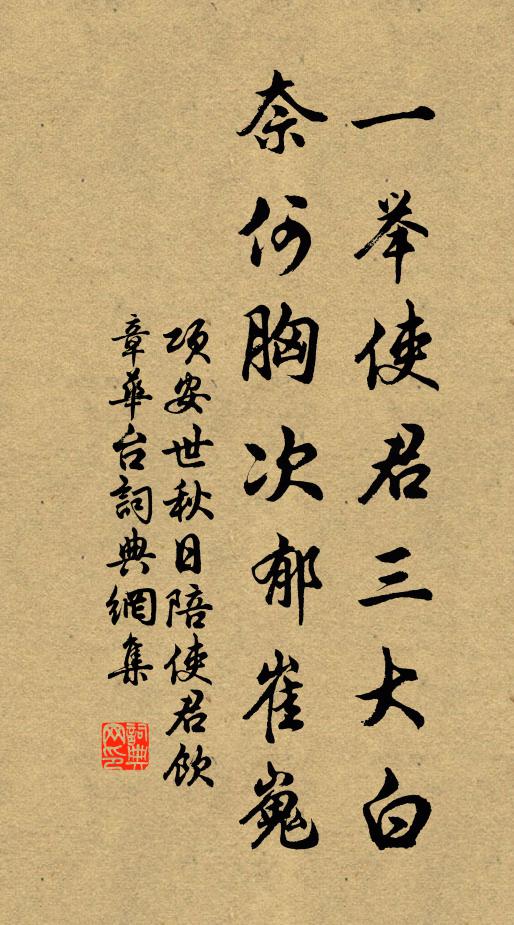 一举使君三大白
奈何胸次郁崔嵬
項安世秋日陪使君飲
章華台詞典網集
詞典网印